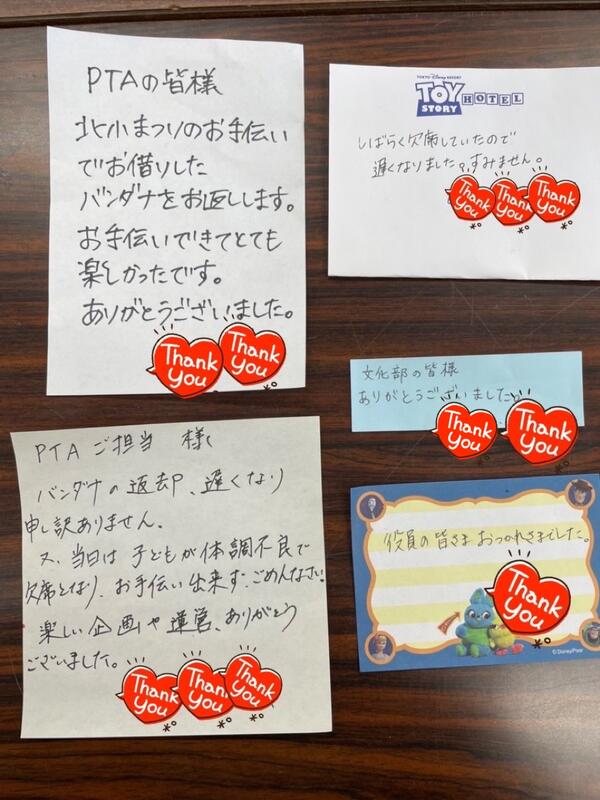 PTAの皆様
北小まつりのお手伝い
でお借りした
バンダナをお返しします。
お手伝いできてとても
楽しかったです。
ありがとうございました。
Thank
you
Thank
you
TOKYO Disney RESORT
TOY
STORY
HOTEL
しばらく欠席していたので
遅くなりました。すみません。
Thank
you
Thank
you
Thank
you
文化部の皆様
ありがとうございました。
Thank
you
Thank
you
PTA ご担当 様
バンダナの返却、遅くなり
申し訳ありません。
又、当日は子どもが体調不良で
欠席となり、お手伝い出来ず、ごめんなさい。
楽しい企画や運営、ありがとう
ございました。
Thank
you
Thank
you
Thank
you
役員の皆さま おつかれさまでした。
Thank
you
©Disney/Pixar